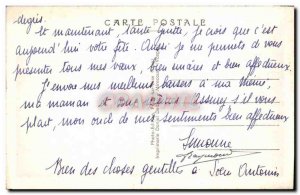 degrés.
CARTE POSTALE
Et maintenant, tante Ginette, je crois que c'est
aujourd'hui votre fête. Aussi je me permets de vous
présenter tous mes vœux, bien sincères et bien affectueux.
J'envoie mes meilleurs baisers à ma
ma maman et Assurez s'il vous
plaît, mon oncle de mes sentiments bien affectueux
Simonne
Bien des choses gentilles à Antonin